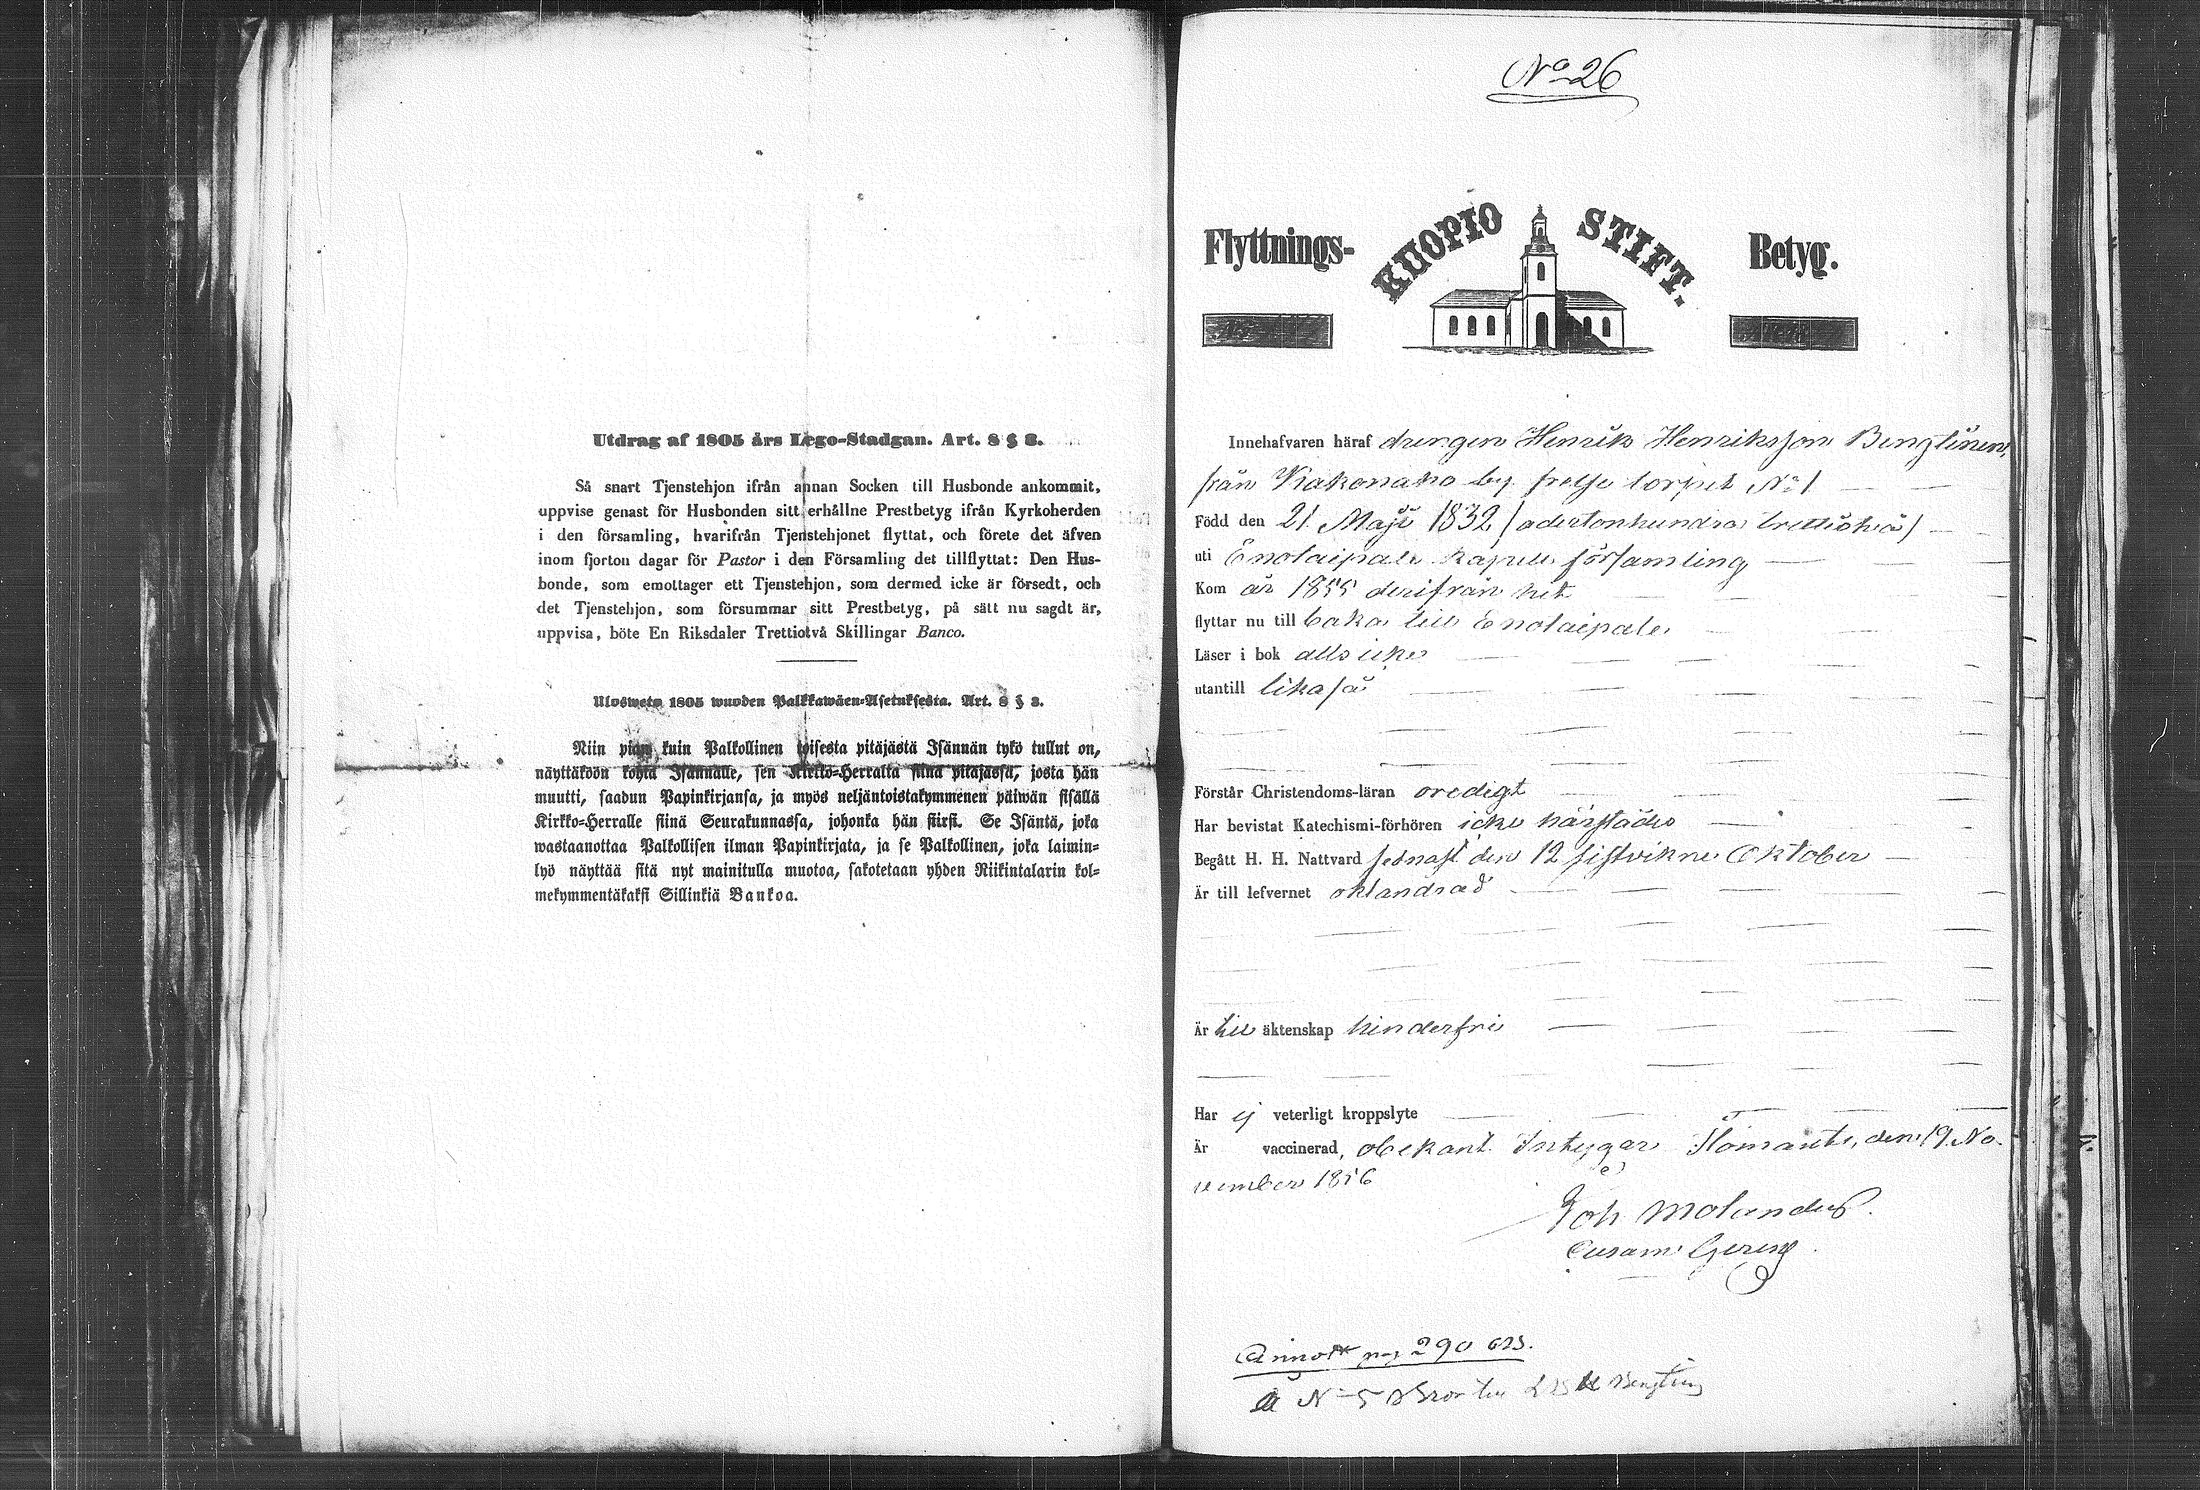 Utdrag af 1805 års Lego-Stadgan. Art. 8 § 8.
Så snart Tjenstehjon ifrån annan Socken till Husbonde ankommit,
uppvise genast för Husbonden sitt erhållne Prestbetyg ifrån Kyrkoherden
i den församling, hvarifrån Tjenstehjonet flyttat, och förete det äfven
inom fjorton dagar för Pastor i den Församling det tillflyttat: Den Hus-
bonde, som emottager ett Tjenstehjon, som dermed icke är försedt, och
det Tjenstehjon, som försummar sitt Prestbetyg, på sätt nu sagdt är,
uppvisa, böte En Riksdaler Trettiotvå Skillingar Banco.
Ulosweto 1805 wuoden Palkkawäen-Asetuksesta. Art. 8 § 8.
Niin pian kuin Palkollinen toisesta pitäjästä Isännän tykö tullut on,
näyttäköön kohta Isännälle, sen Kirkko-Herralta siinä pitäjässä, josta hän
muutti, saadun Papinkirjansa, ja myös neljäntoistakymmenen päiwän sisällä
Kirkko-Herralle siinä Seurakunnassa, johonka hän siirsi. Se Isäntä, joka
wastaanottaa Palkollisen ilman Papinkirjata, ja se Palkollinen, joka laimin-
lyö näyttää sitä nyt mainitulla muotoa, sakotetaan yhden Riikintalarin kol-
mekymmentäkaksi Sillinkiä Bankoa.
No 26
Flyttnings- KUOPIO STIFT. Betyg.
Innehafvaren häraf drengen Henrik Henriksson
från by frelse torpet No 1
Född den 21 Maji 1832 (adertonhundra trettiotvå)
uti Enolaipale kapell församling
Kom år 1855 derifrån hit
flyttar nu till baka till Enolaipale
Läser i bok alls icke
utantill likaså
Förstår Christendoms-läran oredigt
Har bevistat Katechismi-förhören icke härstädes
Begått H. H. Nattvard sednast den 12 sistvikne Oktober
Är till lefvernet oklandrad
Är till äktenskap hinderfri
Har ej veterligt kroppslyte
Är vaccinerad, obekant. Intygar Ilomants, den 19 No-
vember 1856
Joh Molander.
Annot. pag 290
No 5